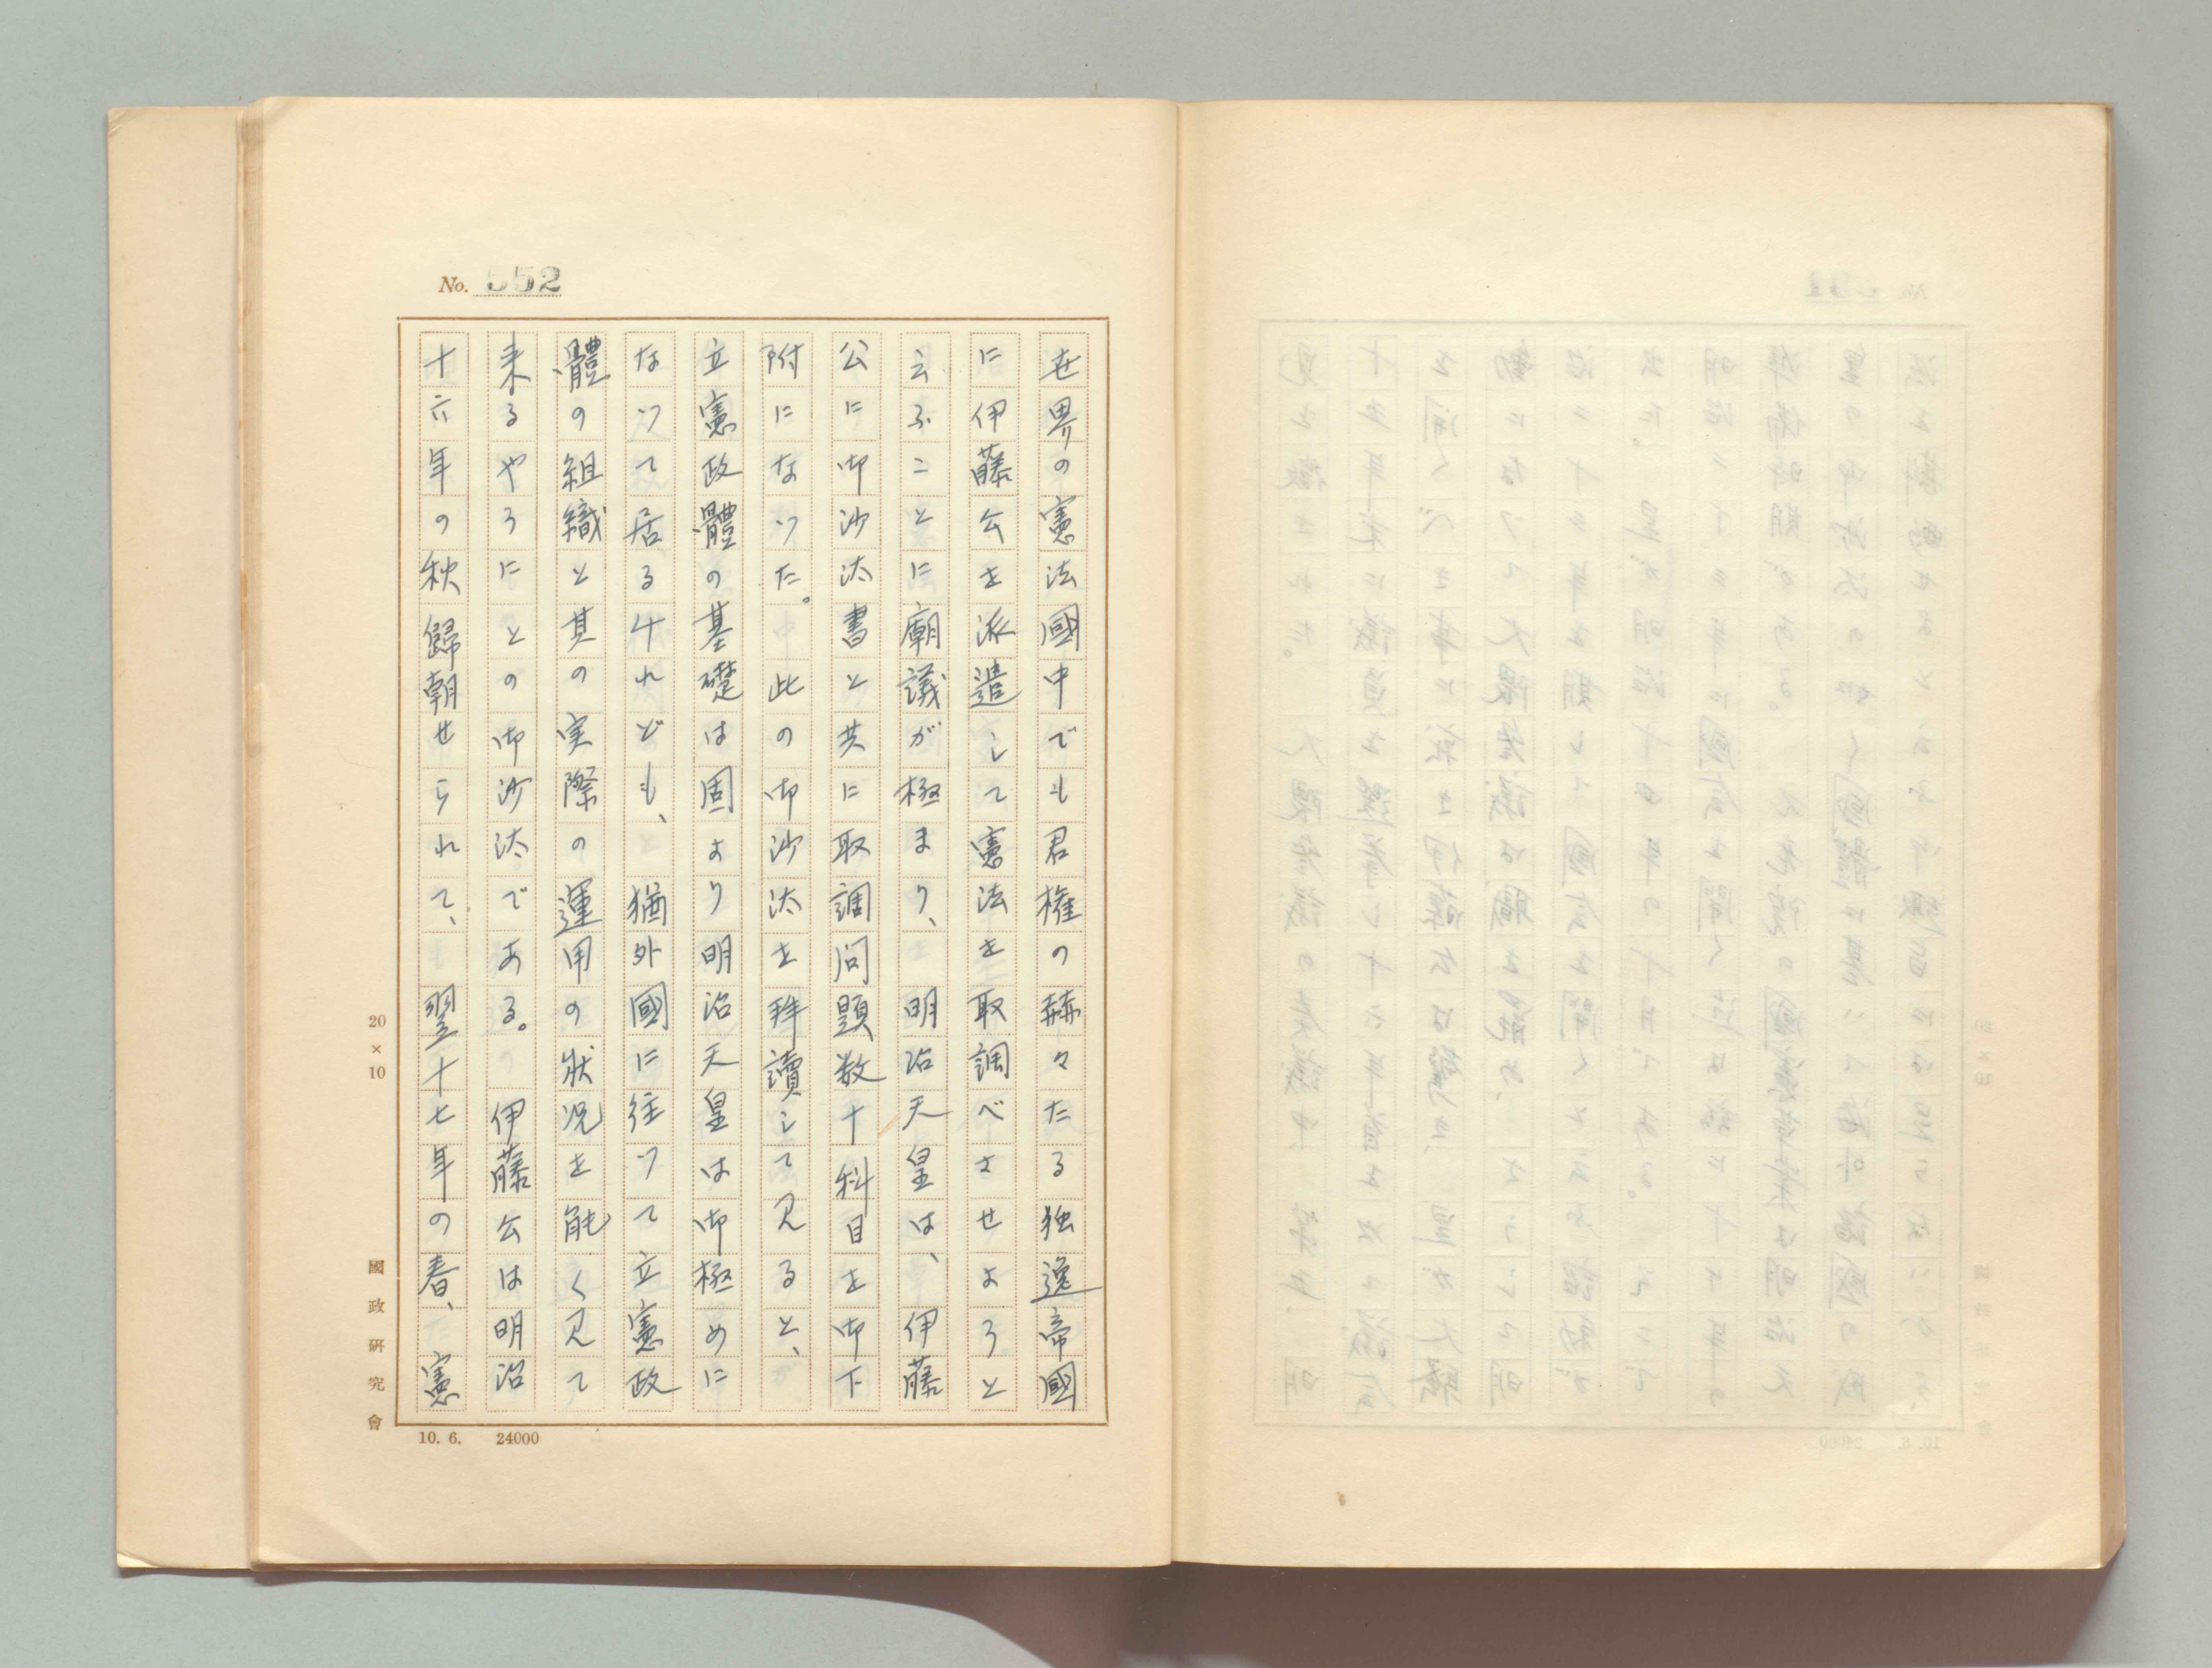 No. 552
世界の憲法國中でも君権の赫々たる独逸帝國
に伊藤公を派遣して憲法を取調べさせようと
云ふことに廟議が極まり、明治天皇は、伊藤
公に御沙汰書と共に取調問題数十科目を御下
附になつた。此の御沙汰を拜讀して見ると、
立憲政體の基礎は固より明治天皇は御極めに
なつて居るけれども、猶外國に往つて立憲政
體の組織と其の実際の運用の狀況を能く見て
来るやうにとの御沙汰である。伊藤公は明治
十六年の秋歸朝せられて、翌十七年の春、憲
20×10
國政研究會
10. 6. 24000